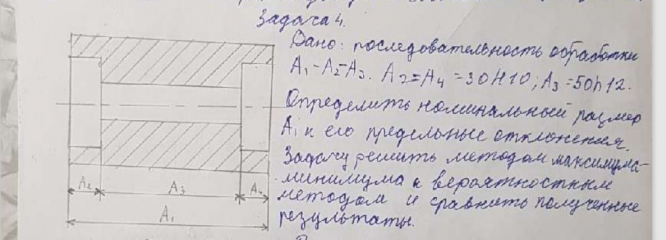 Задача 4.
Дано: последовательность обработки
A₁-A₂-A₃. A₂=A₄=30H10; A₃=50h12.
Определить номинальный размер
A₁ и его предельные отклонения.
Задачу решить методом максимума-
минимума и вероятностным
методом и сравнить полученные
результаты.
A₂ A₃ A₄
A₁